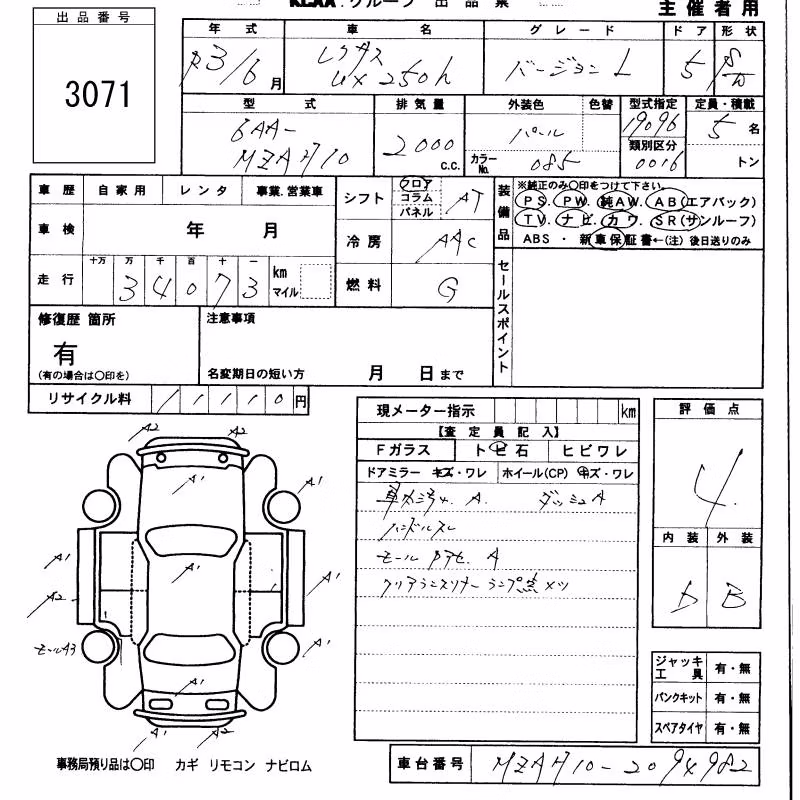 KCAA.グループ 出品票
主催者用
出品番号
3071
年式 車名 グレード ドア 形状
R3/6月 レクサス UX250h バージョンL 5 8/W
型式 排気量 外装色 色替 型式指定 定員・積載
6AA-MZAH10 2000 c.c. パール 19096 5名
カラーNo. 085 類別区分 0016 トン
車歴 自家用 レンタ 事業.営業車
車検 年 月
走行 十万 万 千 百 十 一
3 4 0 7 3 km マイル
シフト フロア コラム パネル AT
冷房 AAC
燃料 G
装備品
※純正のみ○印をつけて下さい。
PS. PW. 純AW. AB(エアバック)
TV. ナビ. カワ. SR(サンルーフ)
ABS・新車保証書←(注)後日送りのみ
セールスポイント
修復歴 箇所
有
(有の場合は○印を)
注意事項
名変期日の短い方 月 日まで
リサイクル料 11110円
現メーター指示 km
【査定員記入】
Fガラス トビ石 ヒビワレ
ドアミラー キズ・ワレ ホイール(CP) キズ・ワレ
車内 A. ダッシュA
ハンドルスレ
モール A
クリアランスソナーランプ点メツ
評価点
4.
内装 外装
b B
A2 A2
A1
A1 A1
A1 A1
A2
モールA3 A1
A1
A1 A2
ジャッキ工具 有・無
パンクキット 有・無
スペアタイヤ 有・無
事務局預り品は○印 カギ リモコン ナビロム
車台番号 MZAH10-2094982